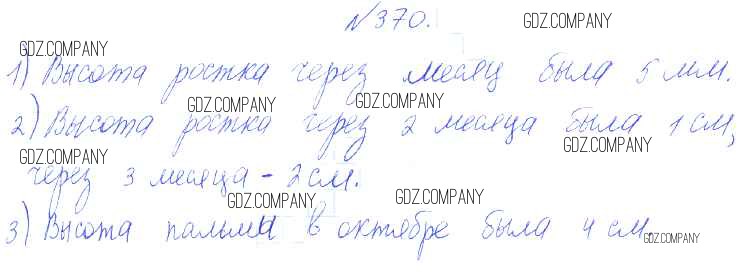 №370.
GDZ.COMPANY
GDZ.COMPANY
1) Высота ростка через месяц была 5 мм.
GDZ.COMPANY GDZ.COMPANY
2) Высота ростка через 2 месяца была 1 см,
GDZ.COMPANY GDZ.COMPANY
через 3 месяца - 2 см.
GDZ.COMPANY GDZ.COMPANY
3) Высота пальмы в октябре была 4 см.
GDZ.COMPANY